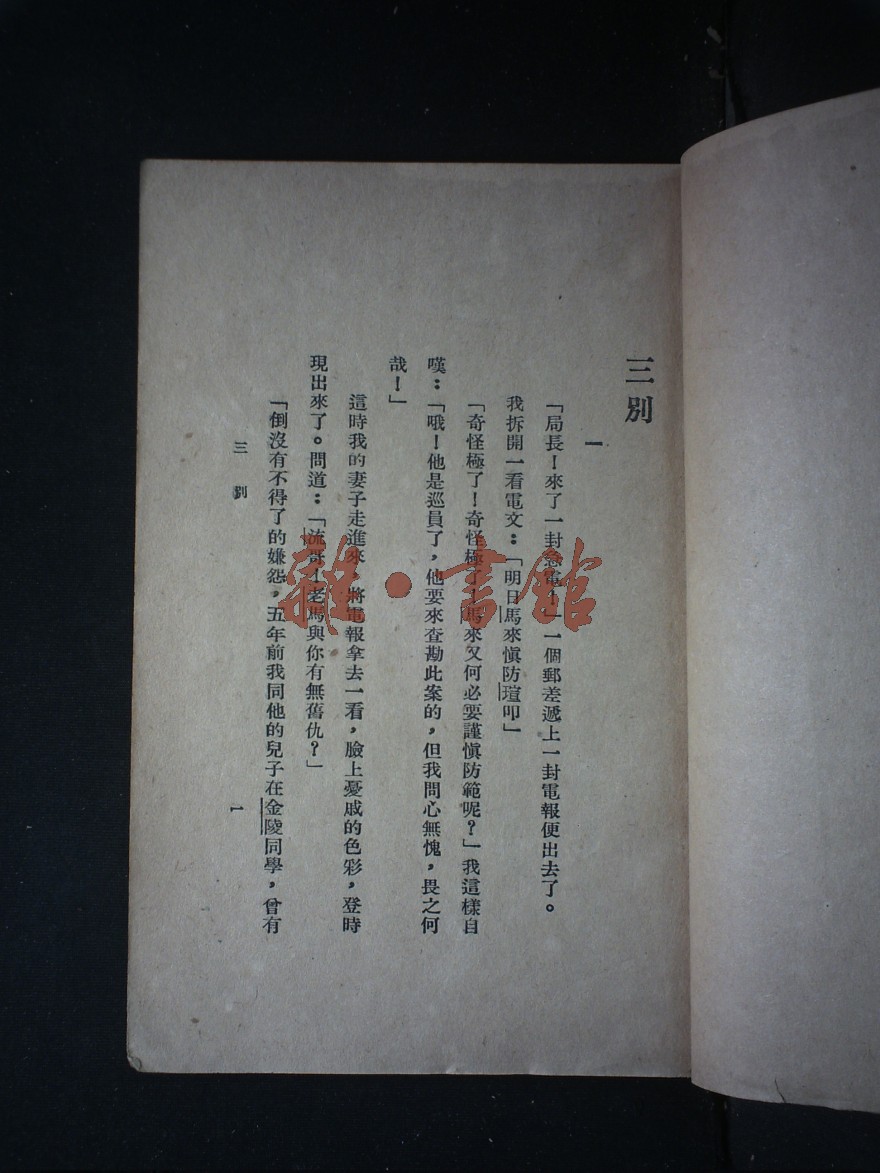 三別
一
「局長！來了一封急電！」一個郵差遞上一封電報便出去了。
我拆開一看電文：「明日馬來愼防瑄叩」
「奇怪極了！奇怪極了！馬來又何必要謹愼防範呢？」我這樣自
嘆：「哦！他是巡員了，他要來查勘此案的，但我問心無愧，畏之何
哉！」
這時我的妻子走進來，將電報拿去一看，臉上憂戚的色彩，登時
現出來了。問道：「流哥！老馬與你有無舊仇？」
「倒沒有不得了的嫌怨，五年前我同他的兒子在金陵同學，曾有
三別
1
雜·書館